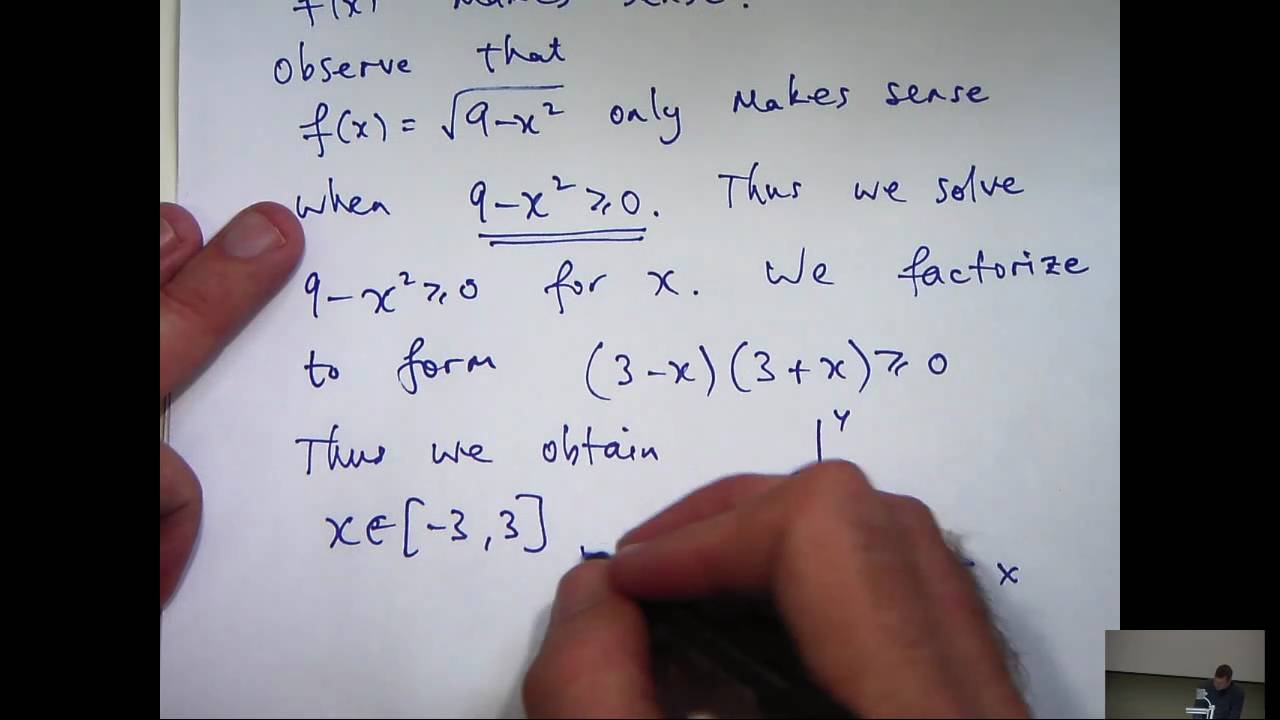 f(x) makes sense.
Observe that
f(x) = √(9-x²) only makes sense
when 9-x² ⩾ 0. Thus we solve
9-x² ⩾ 0 for x. We factorize
to form (3-x)(3+x) ⩾ 0
Thus we obtain
y
x∈[-3,3]
x